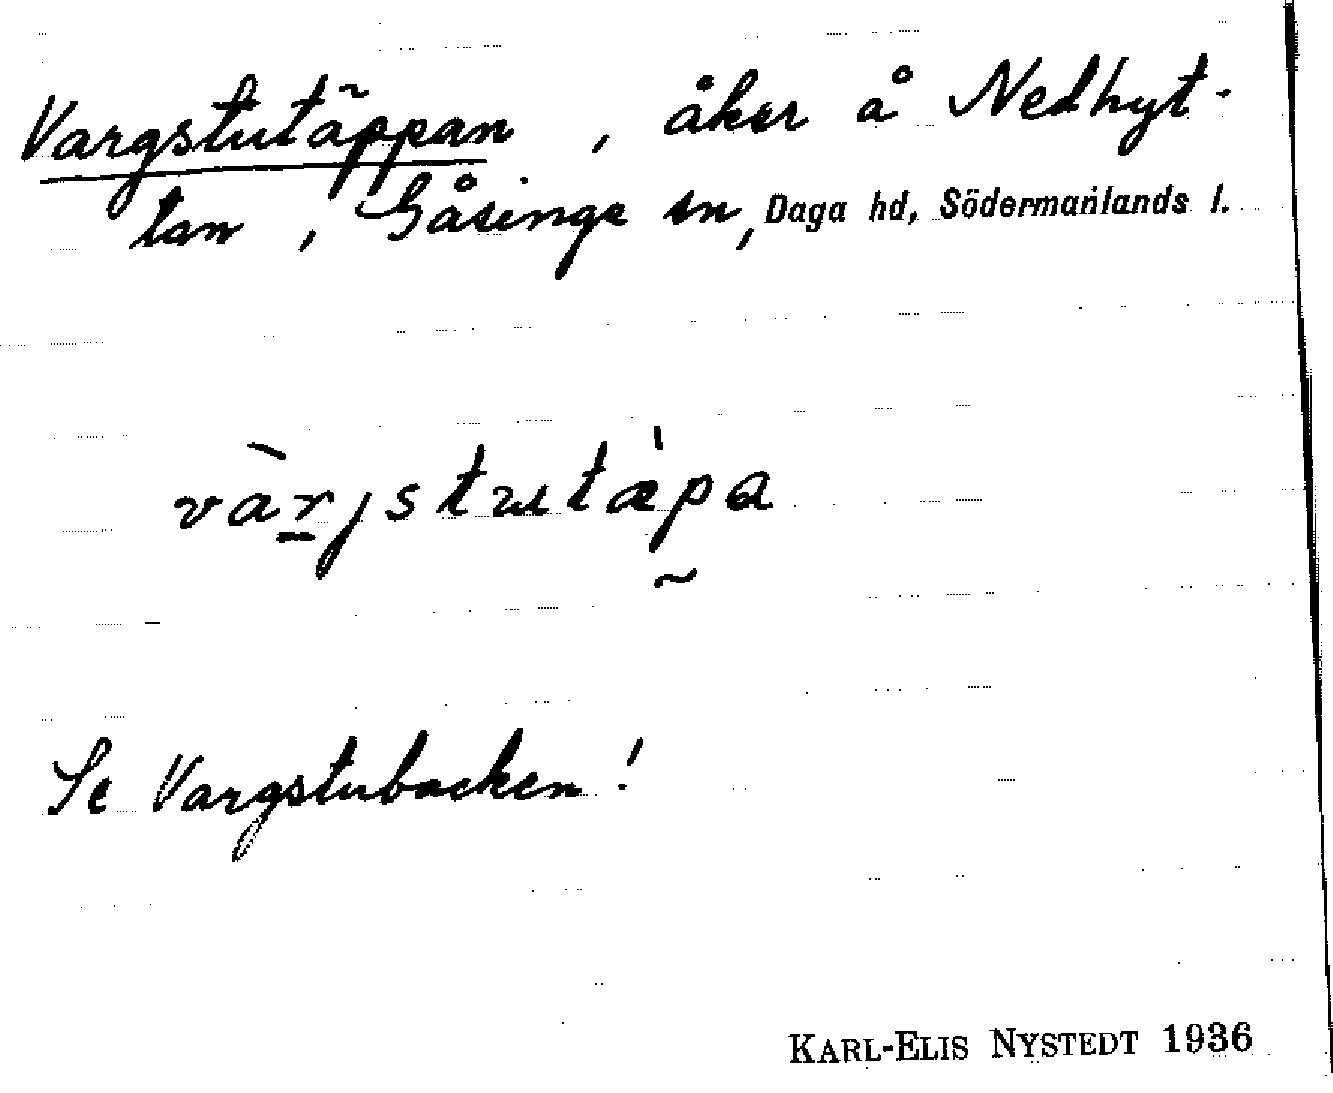 Vargstutäppan, åker å Nedhyt-
tan, Gåsinge sn, Daga hd, Södermanlands l.
va̱rjstutäpa
Se Vargstubacken!
KARL-ELIS NYSTEDT 1936